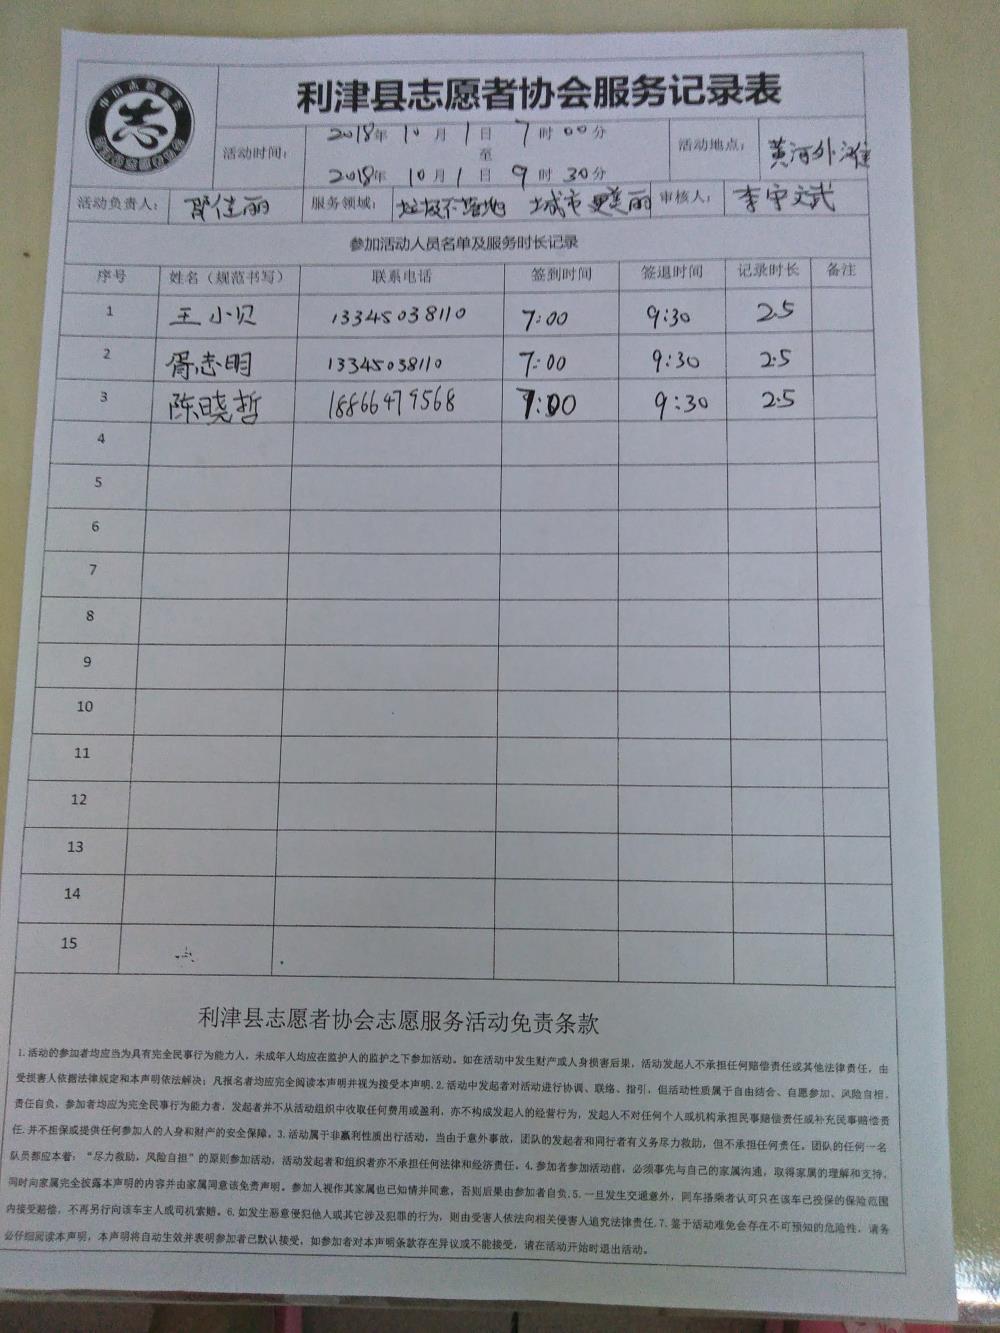 利津县志愿者协会服务记录表
活动时间: 2018年 10月 1日 7时 00分
至
2018年 10月 1日 9时 30分
活动地点: 黄河外滩
活动负责人: 佳丽 服务领域: 垃圾不落地 城市更美丽 审核人: 李守文武
参加活动人员名单及服务时长记录
序号 姓名（规范书写） 联系电话 签到时间 签退时间 记录时长 备注
1 王小贝 13345038110 7:00 9:30 2.5
2 胥志明 13345038110 7:00 9:30 2.5
3 陈晓哲 18866479568 7:00 9:30 2.5
4
5
6
7
8
9
10
11
12
13
14
15
利津县志愿者协会志愿服务活动免责条款
1.活动的参加者均应当为具有完全民事行为能力人，未成年人均应在监护人的监护之下参加活动。如在活动中发生财产或人身损害后果，活动发起人不承担任何赔偿责任或其他法律责任，由
受损害人依据法律规定和本声明依法解决；凡报名者均应完全阅读本声明并视为接受本声明.2.活动中发起者对活动进行协调、联络、指引，但活动性质属于自由结合、自愿参加、风险自担、
责任自负，参加者均应为完全民事行为能力者，发起者并不从活动组织中收取任何费用或盈利，亦不构成发起人的经营行为，发起人不对任何个人或机构承担民事赔偿责任或补充民事赔偿责
任.并不担保或提供任何参加人的人身和财产的安全保障。3.活动属于非赢利性质出行活动，当由于意外事故，团队的发起者和同行者有义务尽力救助，但不承担任何责任。团队的任何一名
队员都应本着：“尽力救助，风险自担”的原则参加活动，活动发起者和组织者亦不承担任何法律和经济责任。4.参加者参加活动前，必须事先与自己的家属沟通，取得家属的理解和支持，
同时向家属完全披露本声明的内容并由家属同意该免责声明。参加人视作其家属也已知情并同意，否则后果由参加者自负.5.一旦发生交通意外，同车搭乘者认可只在该车已投保的保险范围
内接受赔偿，不再另行向该车主人或司机索赔。6.如发生恶意侵犯他人或其它涉及犯罪的行为，则由受害人依法向相关侵害人追究法律责任.7.鉴于活动难免会存在不可预知的危险性，请务
必仔细阅读本声明，本声明将自动生效并表明参加者已默认接受，如参加者对本声明条款存在异议或不能接受，请在活动开始时退出活动。